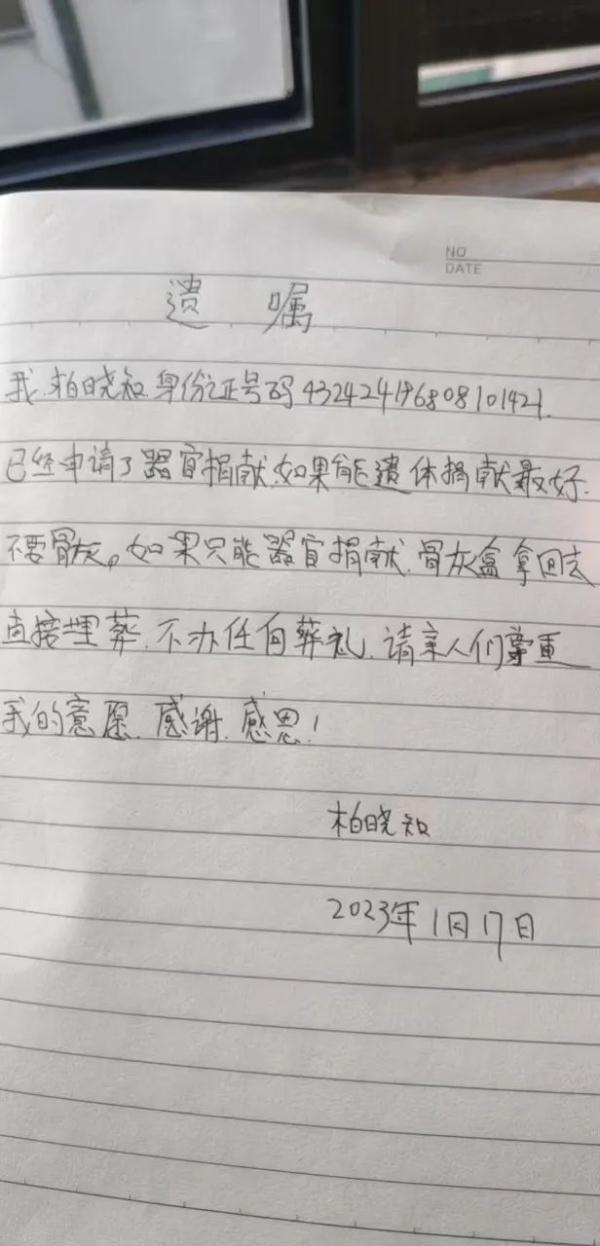 NO
DATE
遗 嘱
我.柏晓知.身份证号码432424196808101421.
已经申请了器官捐献.如果能遗体捐献最好.
不要骨灰。如果只能器官捐献.骨灰盒拿回去
直接埋葬.不办任何葬礼.请亲人们尊重
我的意愿.感谢.感恩!
柏晓知
2023年1月17日